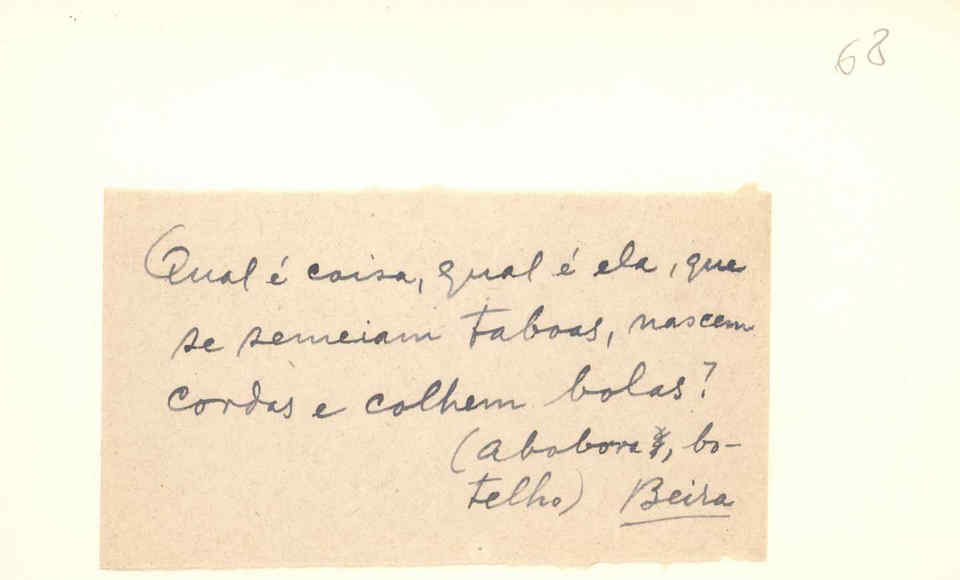 68
Qual é coisa, qual é ela, que
se semeiam taboas, nascem
cordas e colhem bolas?
(Abobora, bo-
telho) Beira